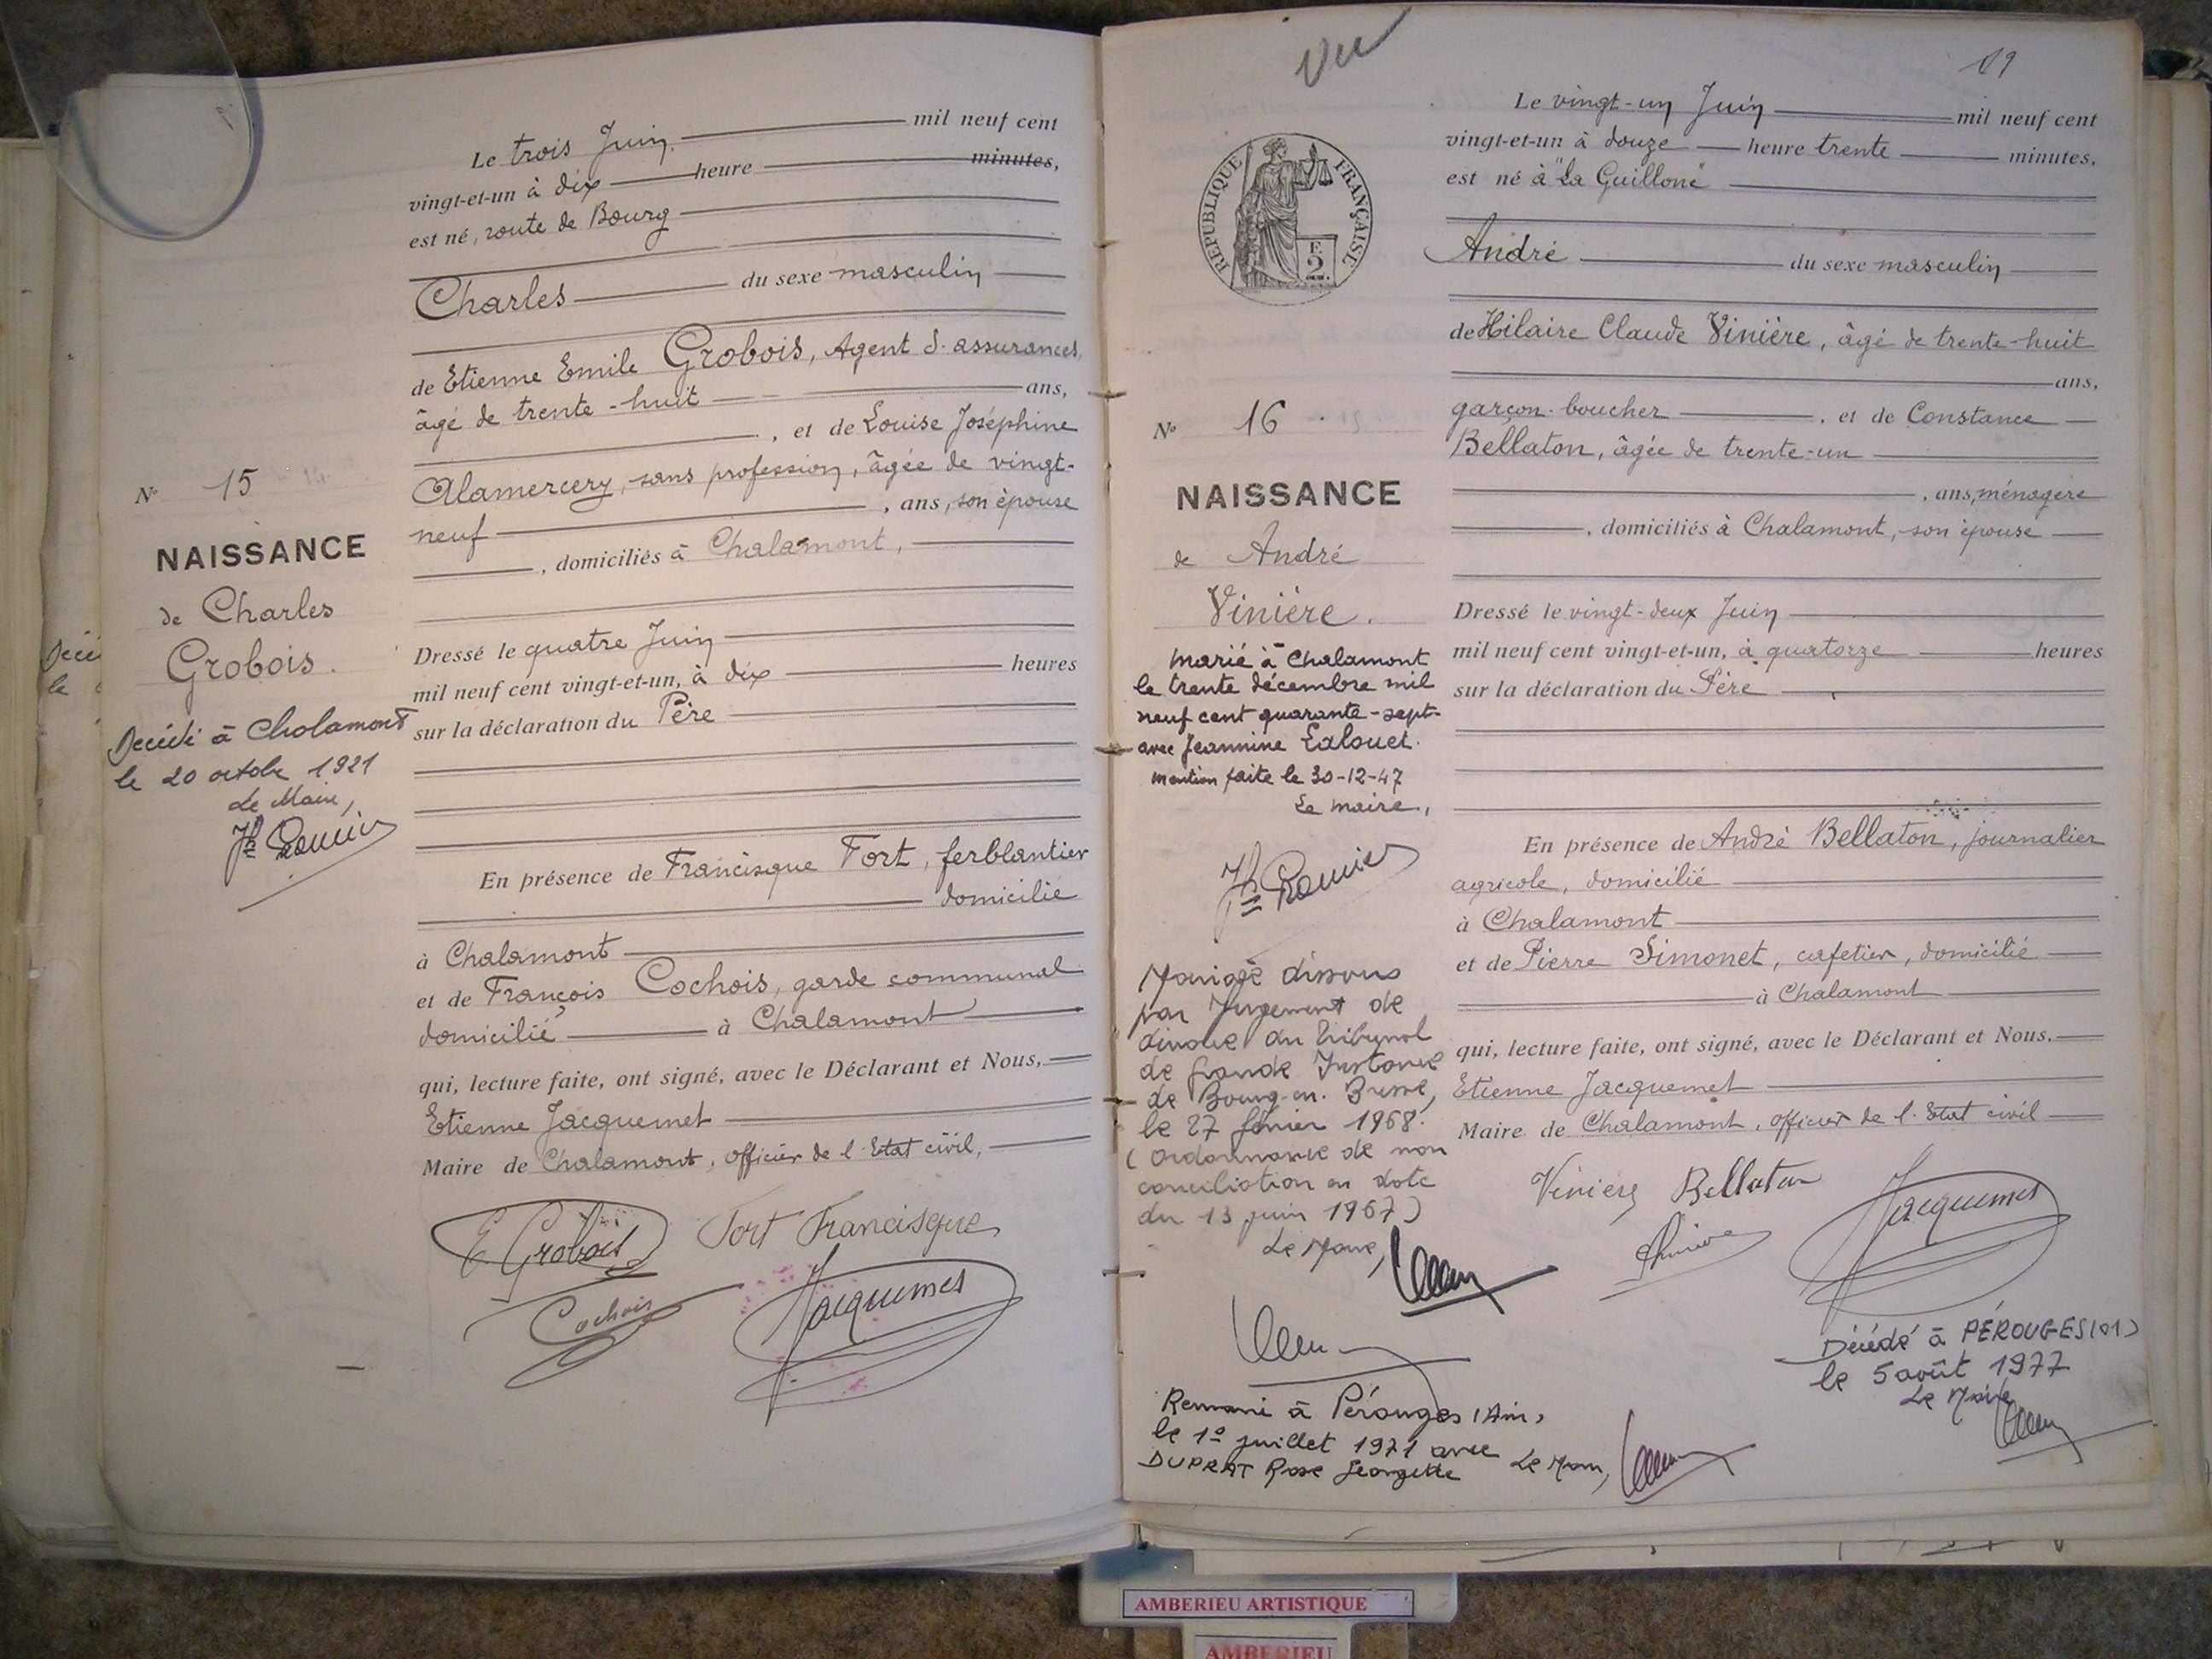 Le trois Juin. mil neuf cent
vingt-et-un à dix heure minutes,
est né, route de Bourg
Charles du sexe masculin
de Etienne Emile Grobois, Agent d'assurances,
âgé de trente-huit ans,
, et de Louise Joséphine
Alamercery, sans profession, âgée de vingt-
neuf , ans, son épouse
, domiciliés à Chalamont,
Dressé le quatre Juin
mil neuf cent vingt-et-un, à dix heures
sur la déclaration du Père
En présence de Francisque Fort, ferblantier
domicilié
à Chalamont
et de François Cochois, garde communal
domicilié à Chalamont
qui, lecture faite, ont signé, avec le Déclarant et Nous,
Etienne Jacquemet
Maire de Chalamont, officier de l'Etat civil,
E. Grobois Fort Francisque
Cochois Jacquemet
No 15
NAISSANCE
de Charles
Grobois.
Décédé à Chalamont
le 20 octobre 1921
Le Maire,
Vu
19
RÉPUBLIQUE FRANÇAISE
2
No 16
NAISSANCE
de André
Vinière.
Marié à Chalamont
le trente décembre mil
neuf cent quarante-sept
avec Jeannine
mention faite le 30-12-47
Le maire,
Mariage dissous
par Jugement de
divorce du Tribunal
de Grande Instance
de Bourg-en-Bresse,
le 27 février 1968.
(Ordonnance de non
conciliation en date
du 13 juin 1967)
Le Maire,
Remarié à Pérouges (Ain)
le 1er juillet 1971 avec
DUPRAT Rose Georgette Le Maire,
Le vingt-un Juin mil neuf cent
vingt-et-un à douze heure trente minutes,
est né à "La Guillone"
André du sexe masculin
de Hilaire Claude Vinière, âgé de trente-huit
ans,
garçon-boucher , et de Constance
Bellaton, âgée de trente-un
, ans, ménagère
, domiciliés à Chalamont, son épouse
Dressé le vingt-deux Juin
mil neuf cent vingt-et-un, à quatorze heures
sur la déclaration du Père
En présence de André Bellaton, journalier
agricole, domicilié
à Chalamont
et de Pierre Simonet, cafetier, domicilié
à Chalamont
qui, lecture faite, ont signé, avec le Déclarant et Nous,
Etienne Jacquemet
Maire de Chalamont, officier de l'Etat civil
Viniere Bellaton Jacquemet
Décédé à PÉROUGES (01)
le 5 août 1977
Le Maire
AMBERIEU ARTISTIQUE
AMBERIEU